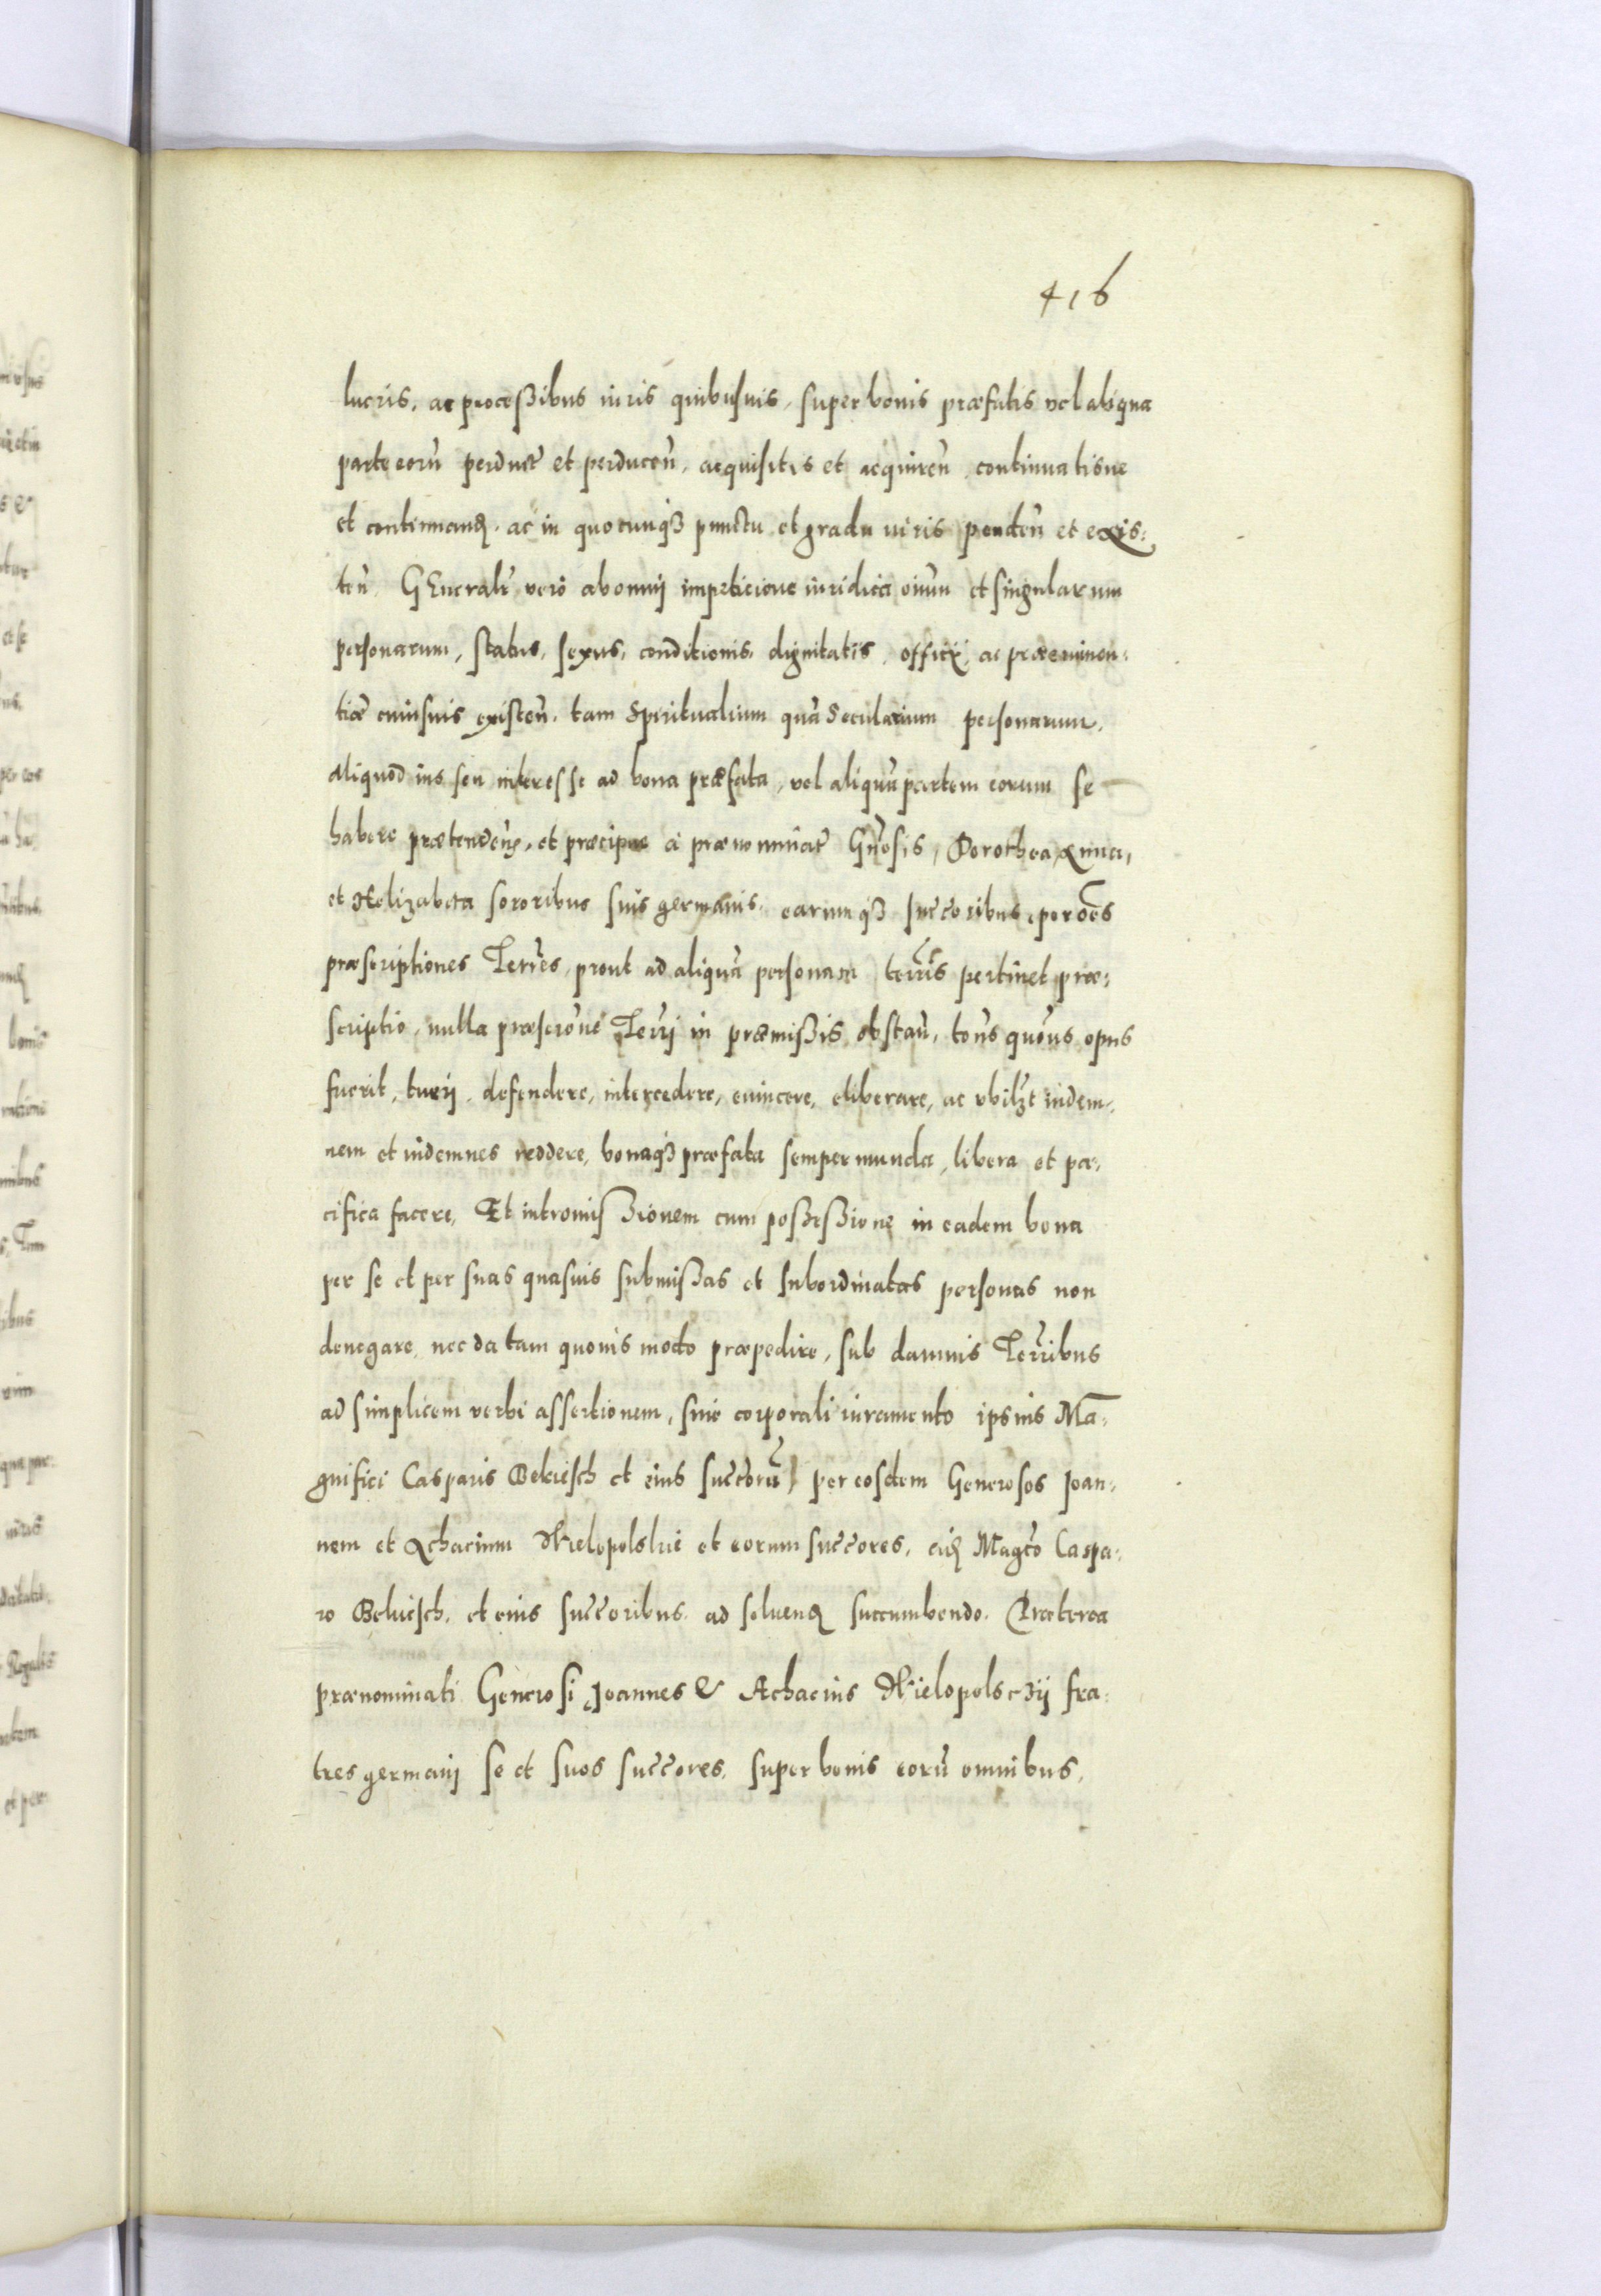 416
lucris, ac processibus iuris quibusuis, super bonis præfatis vel aliqua
parte eorũ perduct̃ et perducen̄, acquisitis et acquiren̄, continuatisue
et continuand, ac in quocunqȝ punctu et gradu iuris penden̄ et exis:
ten̄. GEneralr̃ vero ab omni impeticione iuridica oĩum et singularum
personarum, status, sexus, conditionis, dignitatis, officii, ac præeminen:
tiæ cuiusuis existen̄, tam Spiritualium quã Secularium personarum,
aliquod ius seu interesse ad bona præfata, vel aliquã partem eorum se
habere prætenden̄, et præcipue a prænominat̃ Gñosis, Dorothea, Anna,
et Helizabeta sororibus suis germanis, earumqȝ succ̃oribus, per oẽs
præscriptiones Terrẽs, prout ad aliquã personam terrĩs pertinet præ:
scriptio, nulla præscriõne Terrĩ in præmissis obstan̄, tõns quõns opus
fuerit, tueri, defendere, intercedere, euincere, eliberare, ac vbilȝt indem:
nem et indemnes reddere, bonaqȝ præfata semper munda, libera et pa:
cifica facere, Et intromissionem cum possessione in eadem bona
per se et per suas quasuis submissas et subordinatas personas non
denegare, nec datam quouis modo præpedire, sub damnis Terrĩbus
ad simplicem verbi assertionem, sine corporali iuramento ipsius Ma:
gnifici Casparis Bekiesch et eius succ̃orũ per eosdem Generosos Joan:
nem et Achacium Wielopolskie et eorum succ̃ores, eid Magc̃o Caspa:
ro Bekiesch, et eius succ̃oribus, ad soluend succumbendo. Præterea
prænominati Generosi Joannes & Achacius Wielopolsczii fra:
tres germani se et suos succ̃ores, super bonis eorũ omnibus,